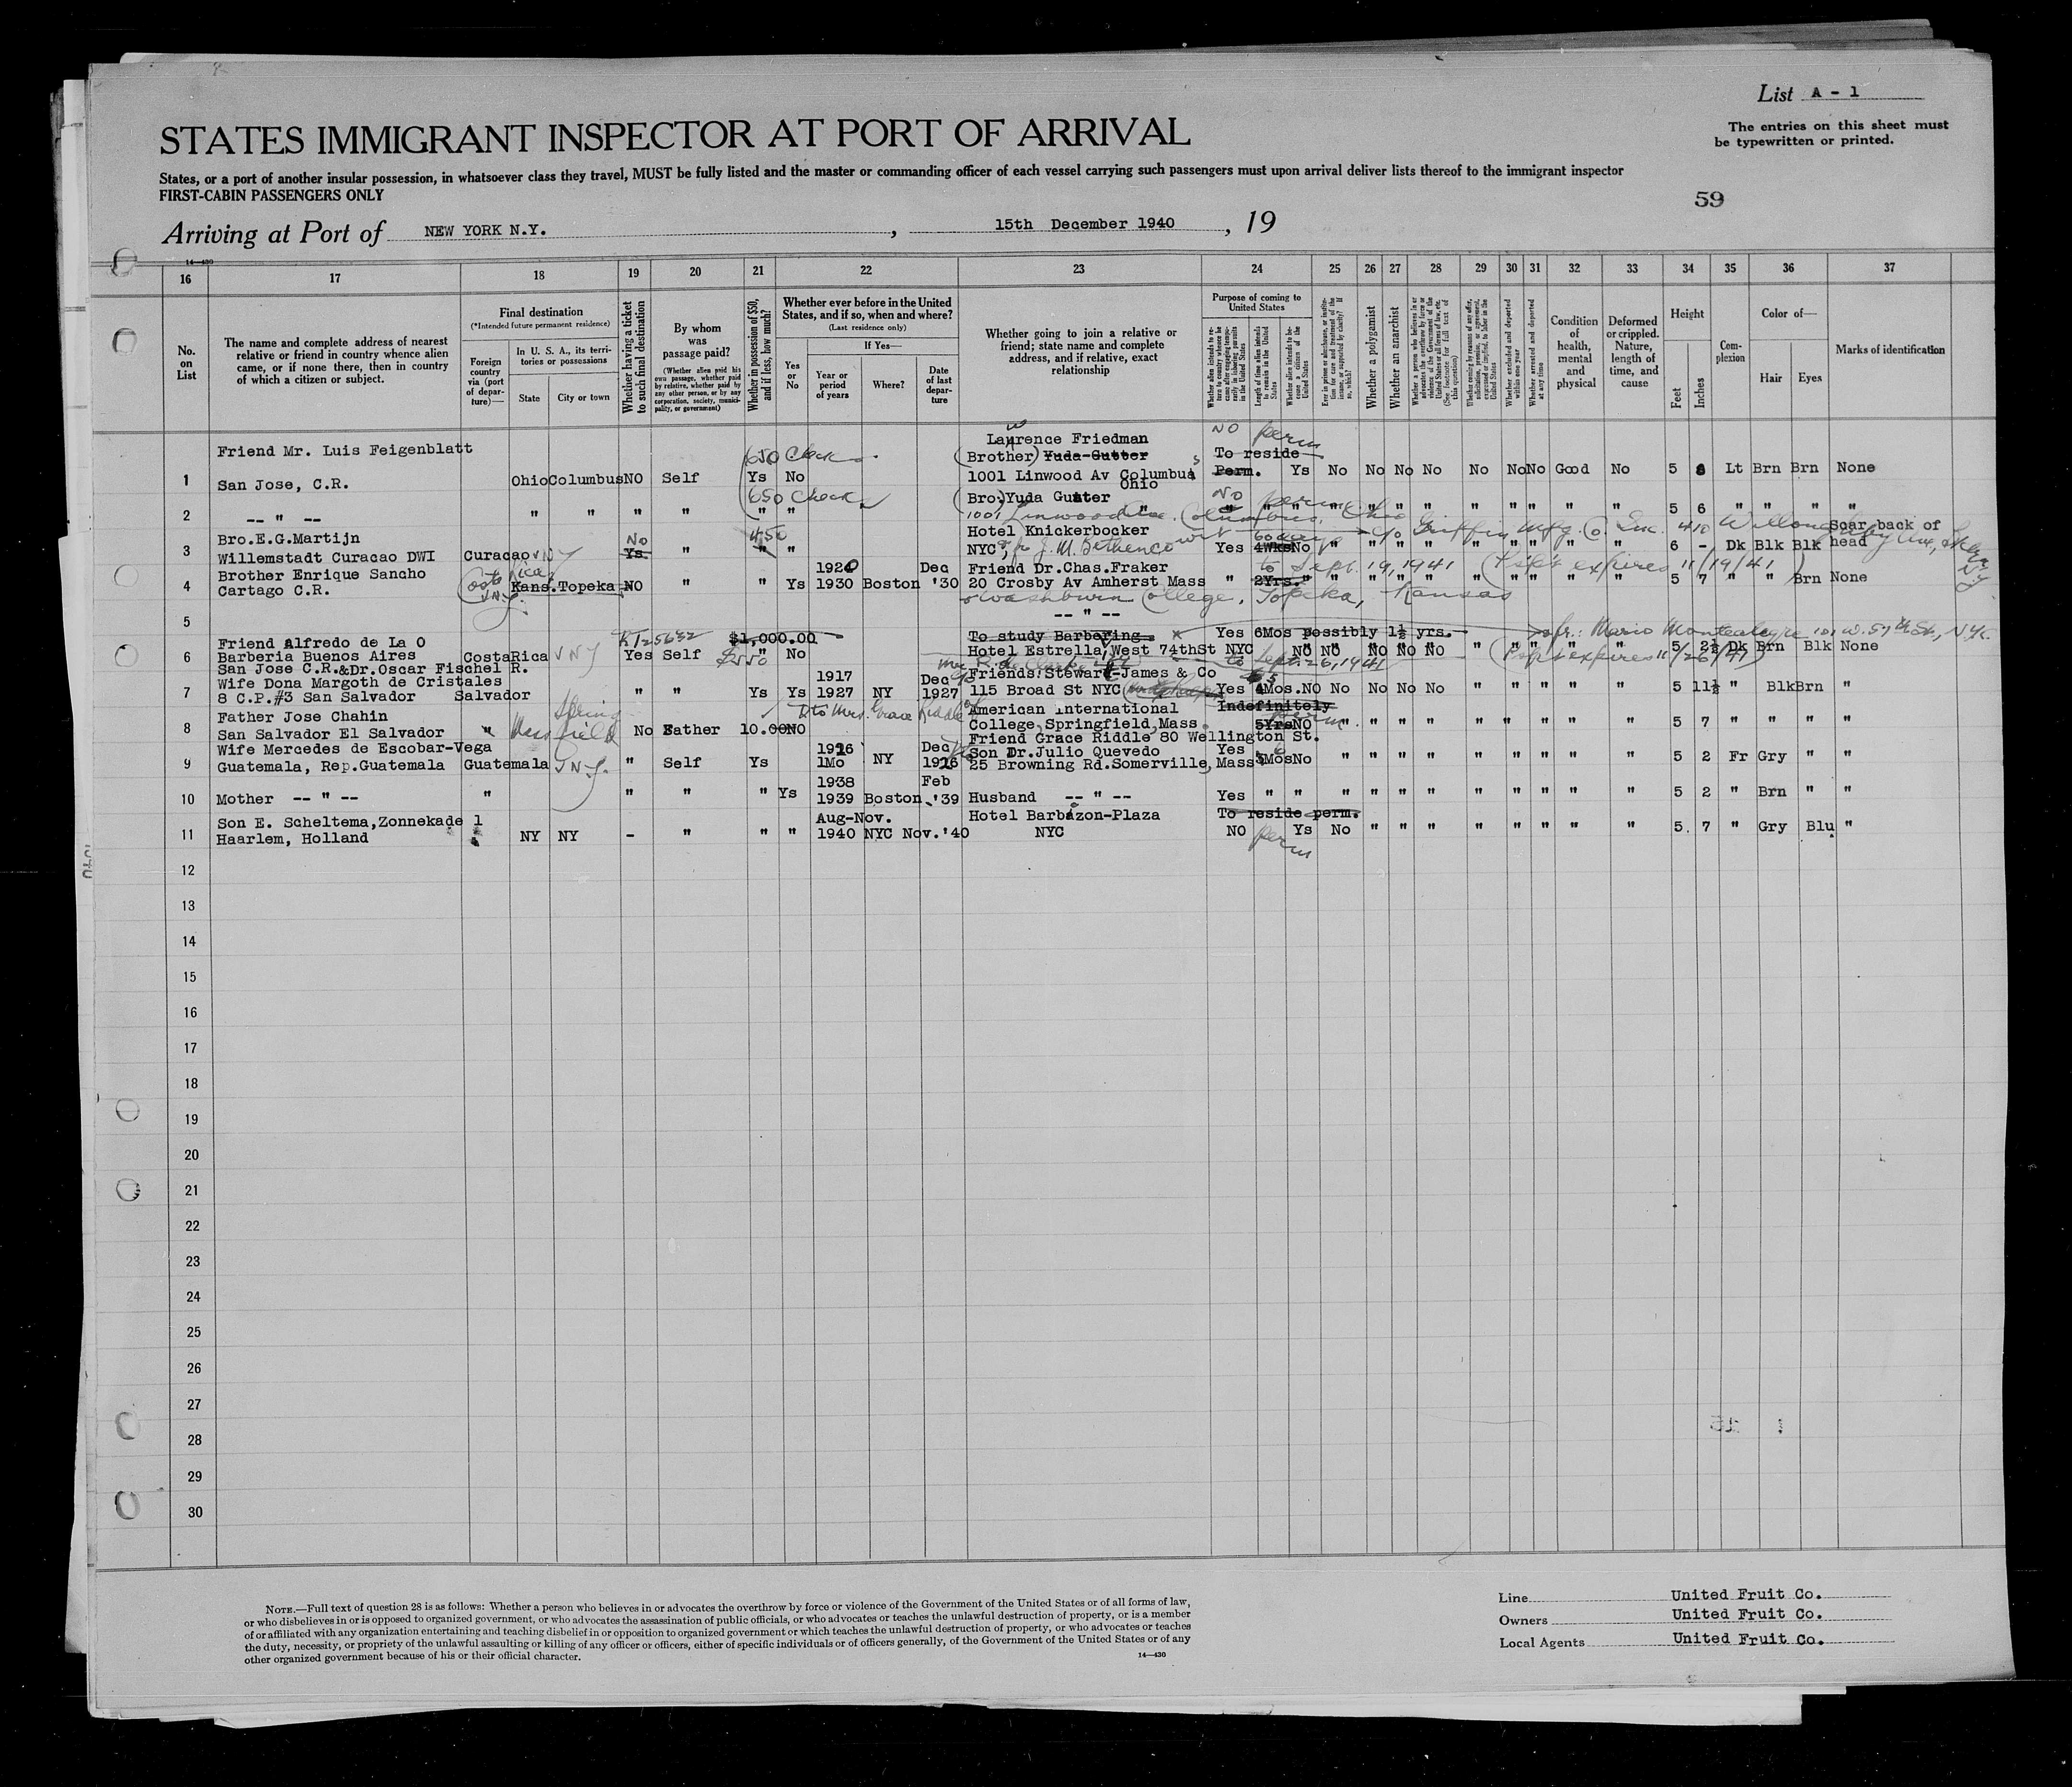 List A - 1
STATES IMMIGRANT INSPECTOR AT PORT OF ARRIVAL
The entries on this sheet must
be typewritten or printed.
States, or a port of another insular possession, in whatsoever class they travel, MUST be fully listed and the master or commanding officer of each vessel carrying such passengers must upon arrival deliver lists thereof to the immigrant inspector
FIRST-CABIN PASSENGERS ONLY
59
Arriving at Port of NEW YORK N.Y. , 15th December 1940 , 19
14—430
16 17 18 19 20 21 22 23 24 25 26 27 28 29 30 31 32 33 34 35 36 37
No. on List
The name and complete address of nearest relative or friend in country whence alien came, or if none there, then in country of which a citizen or subject.
Final destination
(*Intended future permanent residence)
Foreign country via (port of departure)—
In U. S. A., its territories or possessions
State
City or town
Whether having a ticket to such final destination
By whom was passage paid?
(Whether alien paid his own passage, whether paid by relative, whether paid by any other person, or by any corporation, society, municipality, or government)
Whether in possession of $50, and if less, how much?
Whether ever before in the United States, and if so, when and where?
(Last residence only)
If Yes—
Yes or No
Year or period of years
Where?
Date of last departure
Whether going to join a relative or friend; state name and complete address, and if relative, exact relationship
Purpose of coming to United States
Length of time alien intends to remain in the United States
Whether alien intends to become a citizen of the United States
Whether a polygamist
Whether an anarchist
Whether excluded and deported within one year
Whether arrested and deported at any time
Condition of health, mental and physical
Deformed or crippled. Nature, length of time, and cause
Height
Feet
Inches
Complexion
Color of—
Hair
Eyes
Marks of identification
Friend Mr. Luis Feigenblatt 650 Check Lawrence Friedman NO perm
(Brother) Yuda Gutter To reside
1 San Jose, C.R. Ohio Columbus NO Self Ys No 1001 Linwood Av Columbus Perm. Ys No No No No No No No Good No 5 Lt Brn Brn None
Ohio
650 Check (Bro) Yuda Gutter No perm
2 -- " -- " " " " " " 1001 Linwood Ave. Columbus, Ohio " " " " " " " " " " " 5 6 " " " "
Bro.E.G.Martijn No 450 Hotel Knickerbocker 60 days c/o Griffin Mfg. Co. Inc. 410 Willoughby Ave, Scar back of
3 Willemstadt Curacao DWI Curacao VNY Ys. " " " NYC Yes 4Wks No " " " " " " " " " 6 - Dk Blk Blk head
Brother Enrique Sancho Costa Rica 1920 Dec Friend Dr.Chas.Fraker to Sept. 19, 1941 expires 11/19/41)
4 Cartago C.R. VNY Kans. Topeka NO " " Ys 1930 Boston '30 20 Crosby Av Amherst Mass " 2Yrs. " " " " " " " " " 5 7 " " Brn None
Washburn College, Topeka, Kansas
5 -- " --
Friend Alfredo de La O $1,000.00 To study Barbering Yes 6Mos possibly 1½ yrs. Mario Montealegre 101 W. 57th St, N.Y.
6 Barberia Buenos Aires CostaRica VNY Yes Self $550 " No Hotel Estrella, West 74thSt NYC No No No No No " " " " " 5 2½ Dk Brn Blk None
San Jose C.R.&Dr.Oscar Fischel R. to Sept. 26, 1941 expires 11/26/41)
Wife Dona Margoth de Cristales 1917 Dec Friends:Steward-James & Co
7 8 C.P.#3 San Salvador Salvador " " Ys Ys 1927 NY 1927 115 Broad St NYC Yes 4Mos. NO No No No No " " " " " 5 11½ " Blk Brn "
to Mrs. Grace Riddle American International Indefinitely
Father Jose Chahin Springfield perm
8 San Salvador El Salvador " Mass No Father 10.00 NO College, Springfield, Mass. 5Yrs NO " " " " " " " " " 5 7 " " " "
Friend Grace Riddle 80 Wellington St.
Wife Mercedes de Escobar-Vega 1926 Dec Son Dr.Julio Quevedo Yes
9 Guatemala, Rep.Guatemala Guatemala VNY. " Self Ys 1Mo NY 1926 25 Browning Rd.Somerville, Mass Mos No " " " " " " " " " 5 2 Fr Gry " "
1938 Feb
10 Mother -- " -- " " " " Ys 1939 Boston '39 Husband -- " -- Yes " " " " " " " " " " " 5 2 " Brn " "
Son E. Scheltema, Zonnekade 1 Aug-Nov. Hotel Barbizon-Plaza To reside perm.
11 Haarlem, Holland NY NY - " " " 1940 NYC Nov.'40 NYC NO perm Ys No " " " " " " " " 5 7 " Gry Blu "
12
13
14
15
16
17
18
19
20
21
22
23
24
25
26
27
28
29
30
NOTE.—Full text of question 28 is as follows: Whether a person who believes in or advocates the overthrow by force or violence of the Government of the United States or of all forms of law,
or who disbelieves in or is opposed to organized government, or who advocates the assassination of public officials, or who advocates or teaches the unlawful destruction of property, or is a member
of or affiliated with any organization entertaining and teaching disbelief in or opposition to organized government or which teaches the unlawful destruction of property, or who advocates or teaches
the duty, necessity, or propriety of the unlawful assaulting or killing of any officer or officers, either of specific individuals or of officers generally, of the Government of the United States or of any
other organized government because of his or their official character.
14—430
Line United Fruit Co.
Owners United Fruit Co.
Local Agents United Fruit Co.